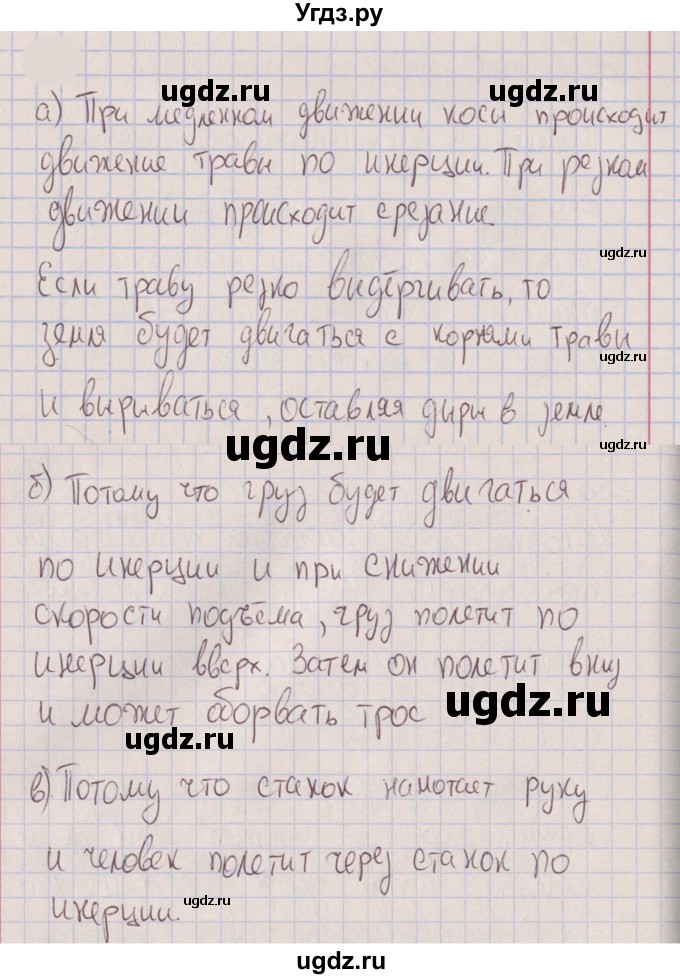 Угдз.ру
ugdz.ru
ugdz.ru
а) При медленном движении косы происходит
движение травы по инерции. При резком
движении происходит срезание.
ugdz.ru
Если траву резко выдёргивать, то
земля будет двигаться с корнями травы
ugdz.ru
и вырываться, оставляя дыры в земле.
ugdz.ru
ugdz.ru
б) Потому что груз будет двигаться
по инерции и при снижении
скорости подъёма, груз полетит по
ugdz.ru
инерции вверх. Затем он полетит вниз
и может оборвать трос
ugdz.ru
ugdz.ru
в) Потому что станок намотает руку
и человек полетит через станок по
инерции.
ugdz.ru
ugdz.ru
ugdz.ru